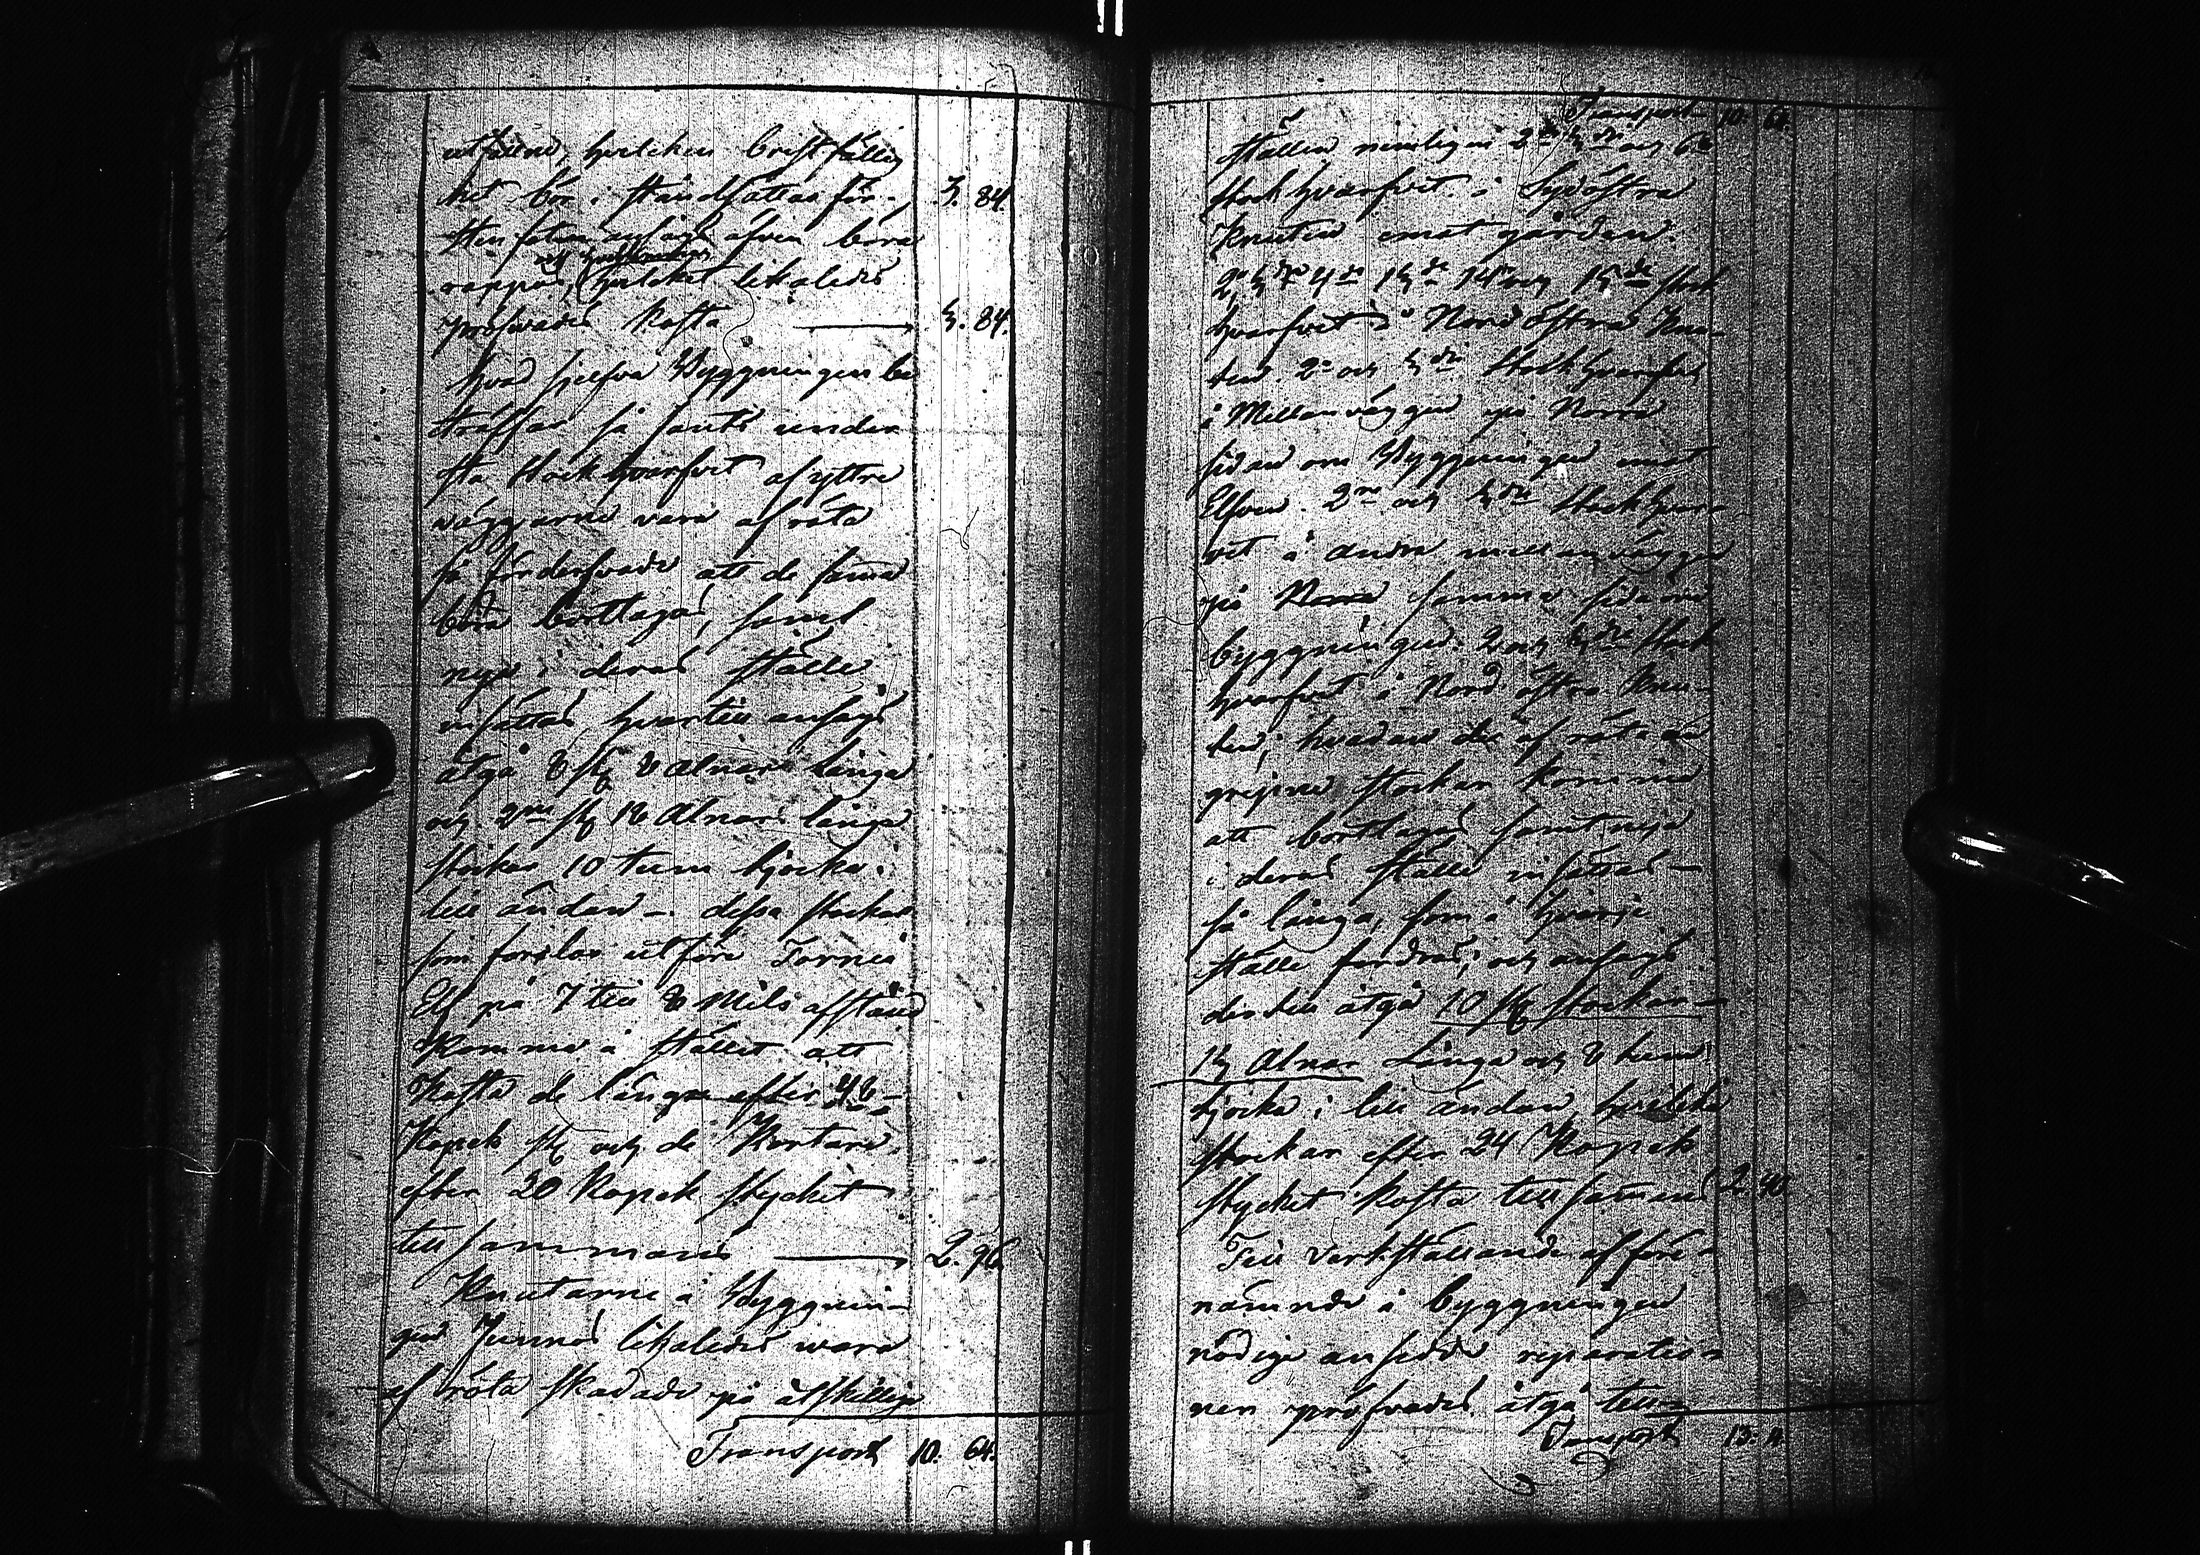 utfallne, hvilken bristfällig
het bör i ståndsättas för. 3. 84.
Stenfoten ansågs äfven böra
rappas, hvilket likaledes
pröfvades kosta 3. 84.
Hvad sjelfva Byggningen be
träffar så fants under
sta Stockhvarfvet af yttre
väggarne vara af röta
så förderfvade att de samma
böra borttagas, samt
nya i deras ställe
insättas hvartill ansågs
åtgå 8 st 8 alnars långa
och 2ne st 18 Alnars långa
stockar 10 tum tjocka i
lill ändan - dessa stockar
som forslas utföre Torneå
Elf på 7 till 8 Mils afstånd
komma å stället att
kosta de långa efter 48
Kopek st och de kortare
efter 20 Kopek stycket
tillsammans 2. 96.
Knutarne i Byggnin-
gen funnos likaledes wara
af röta skadade på åtskillige
Transport 10. 64.
Transport 10. 64.
ställen nemligen 2dra 3dje och 6te
stockhvarfvet i Sydöstra
knuten emot gården.
2a 3dje 4de 13de 14de och 15de stock
hvarfvet i Nordöstra Knu-
ten. 2a och 3dje Stockhvarfvet
i Mellanväggen på Norra
sidan om Byggningen emot
Elfven. 2ra och 3dje Stockhvarf-
vet i andra mellanväggen
på samma sida om
byggningen. 2 och 3dje stock
hvarfvet i Nord östra Knu-
ten; hvadan de af röta an
gripne stockar komma
att borttagas samt nya
i deras ställe insättas -
så långa, som i hvarje
ställe fordras; och ansågs
dertill åtgå 10 st stockar
13 Alnar Långa och 8 tum
tjocka i lill ändan, hvilka
stockar efter 24 Kopek
stycket kosta tillsamans 2. 40
Till verkställande af före-
nämnde i byggningen
nödige ansedde reparatio-
ner pröfvades åtgå till
Transport 13. 4